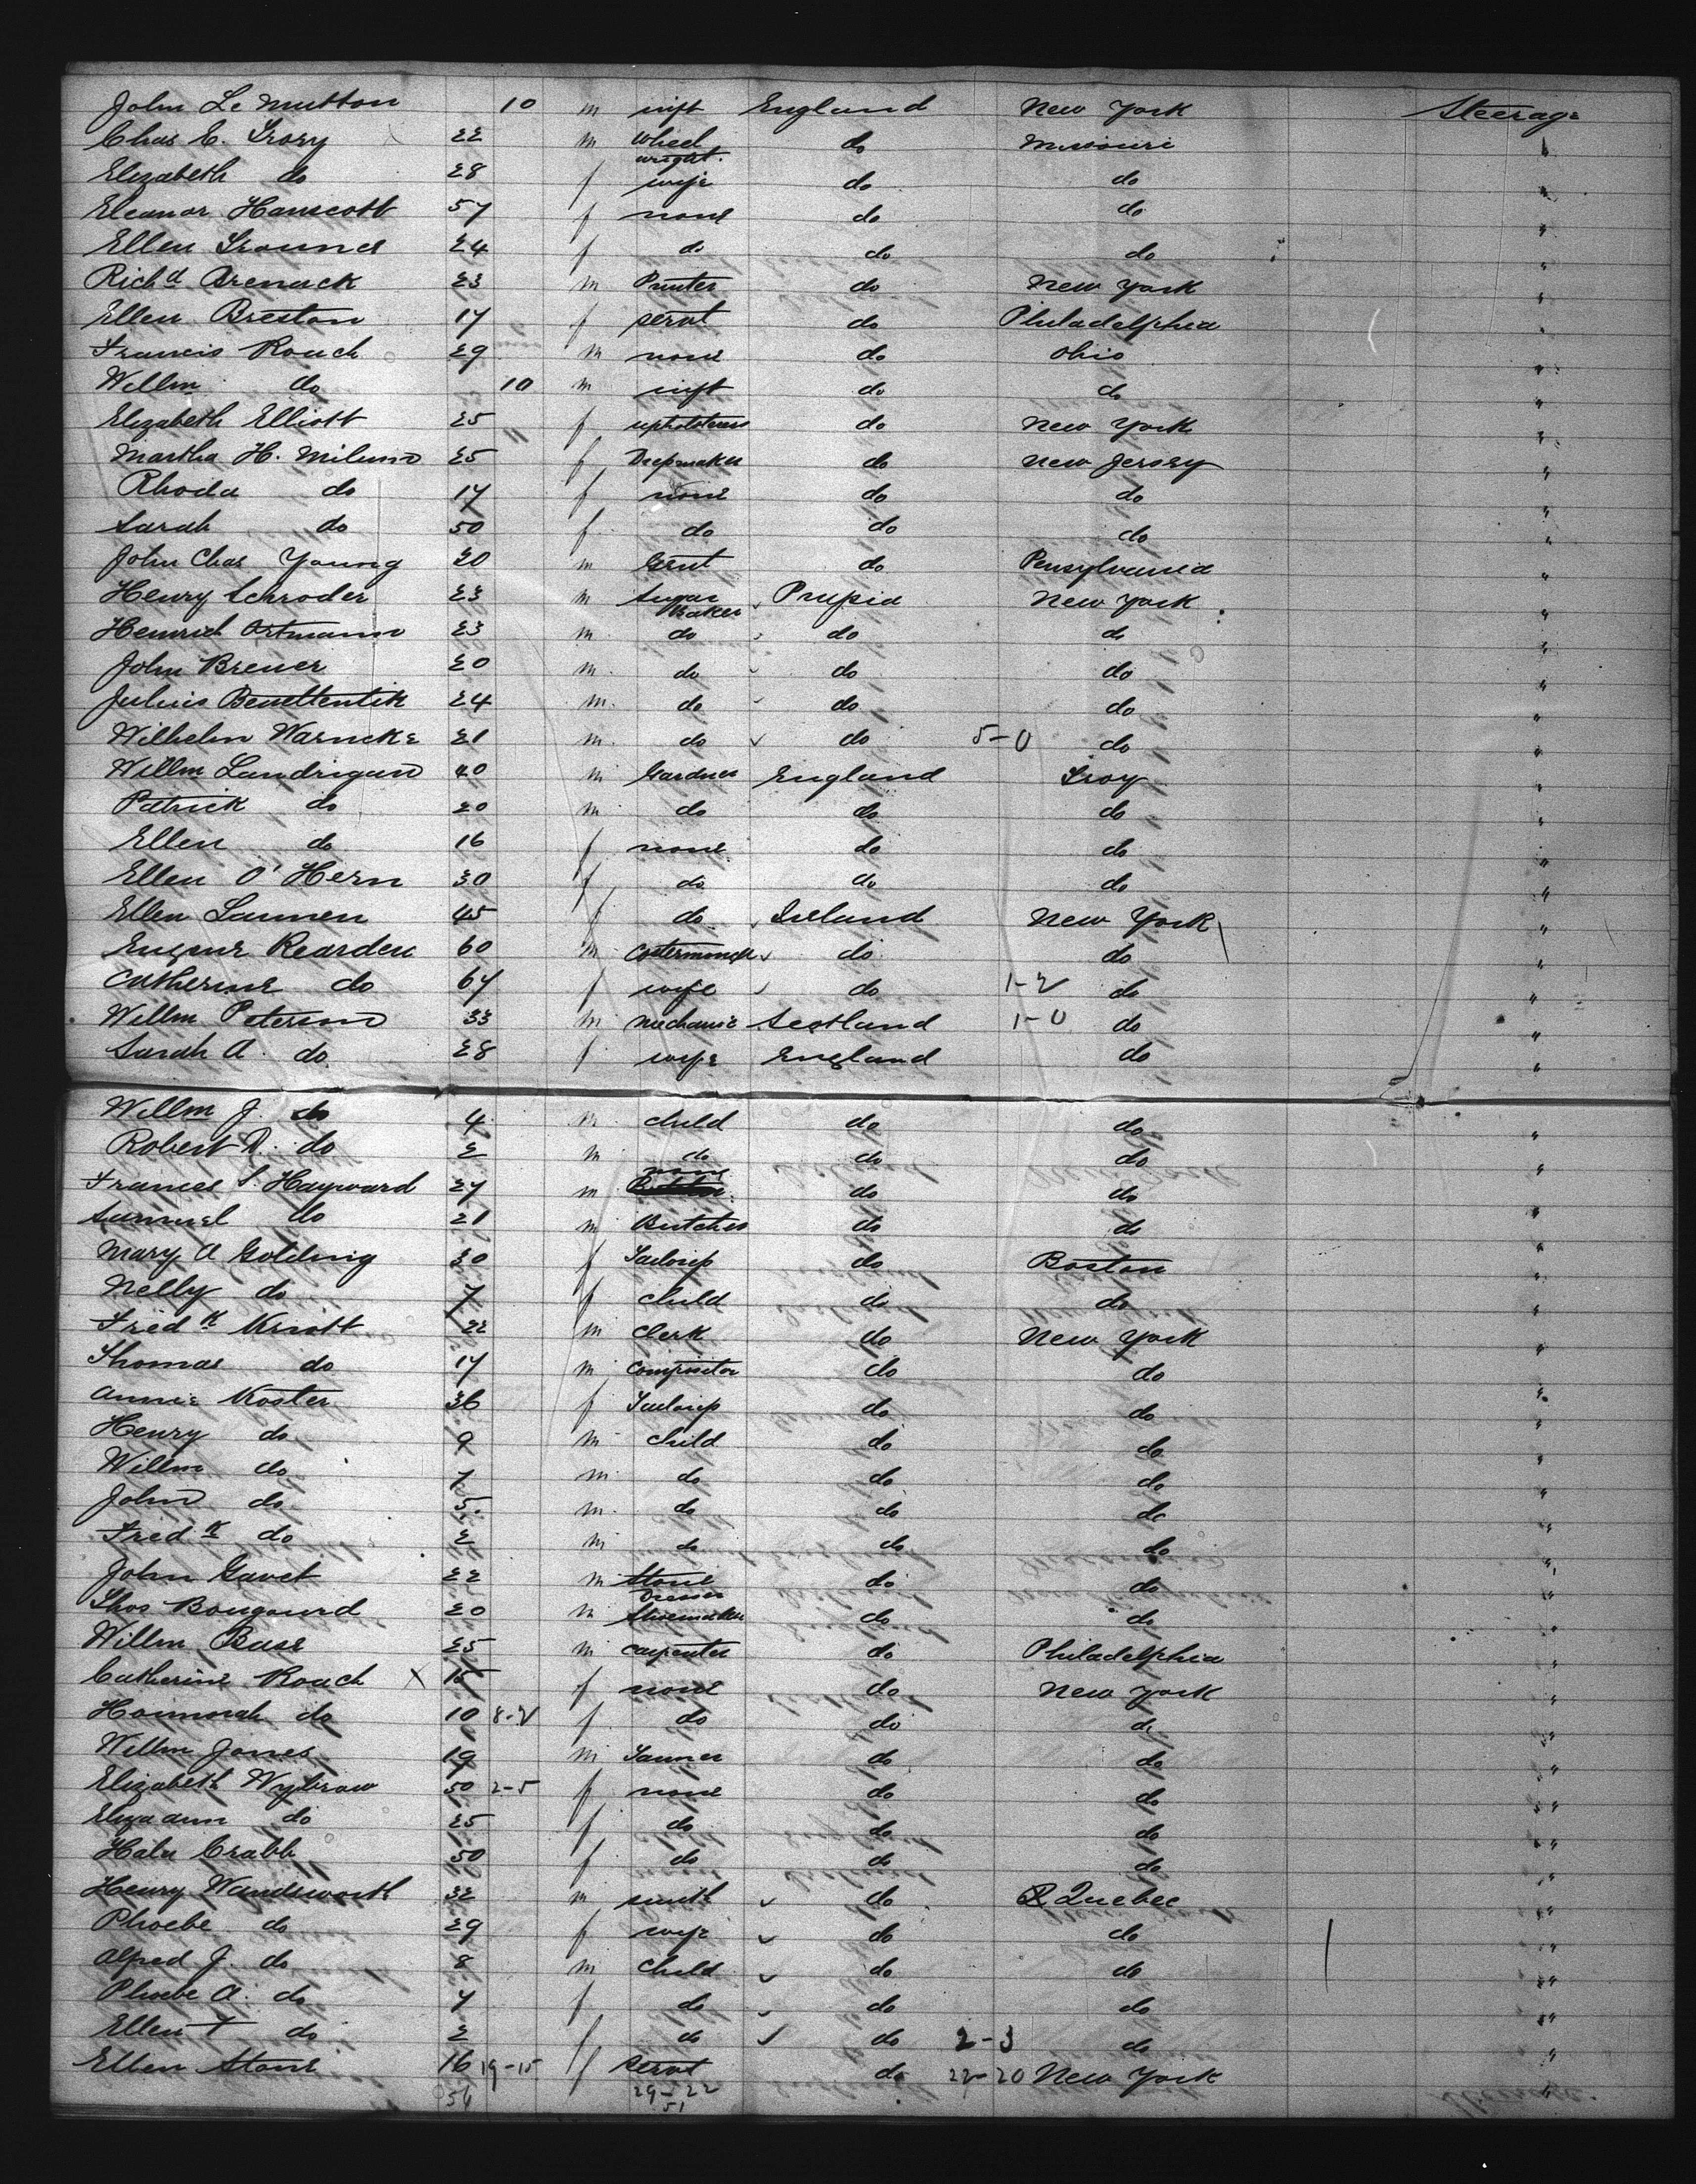 John Le Mutton 10 m inft England New York Steerage
Chas E. Ivory 22 m Wheel wright do Missouri "
Elizabeth do 28 f wife do do "
Eleanor Hanscott 57 f none do do "
Ellen 24 f do do do "
Richd 23 m do New York "
Ellen Breston 17 f servt do Philadelphia "
Francis Roach 29 m none do Ohio "
Willm do 10 m inft do do "
Elizabeth Elliott 25 f do New York "
Martha H. 25 f do New Jersey "
Rhoda do 17 f none do do "
Sarah do 50 f do do do "
John Chas Young 20 m Gent do Pensylvania "
Henry Schroder 23 m Sugar Baker Prussia New York "
Heinrich Ortmann 23 m do do do "
John Brener 20 m do do do "
Julius 24 m do do do "
Wilhelm Warncke 21 m do do 5-0 do "
Willm Landrigan 40 m Gardner England Troy "
Patrick do 20 m do do do "
Ellen do 16 f none do do "
Ellen O'Hern 30 f do do do "
Ellen 45 f do Ireland New York "
Eugene Rearden 60 m do do "
Catherine do 64 f wife do 1-2 do "
Willm Peterson 33 m mechanic Scotland 1-0 do "
Sarah A. do 28 f wife England do "
Willm J. do 4 m child do do "
Robert D. do 2 m do do do "
Frances S. Hayward 27 m none do do "
Samuel do 21 m Butcher do do "
Mary A Golding 30 f Tailoress do Boston "
Nelly do 7 f child do do "
Fredk Knott 22 m Clerk do New York "
Thomas do 17 m Compositor do do "
Annie Koster 36 f Tailoress do do "
Henry do 9 m child do do "
Willm do 7 m do do do "
John do 5 m do do do "
Fredk do 2 m do do do "
John Gavet 22 m Stone Dresser do do "
Thos Bougourd 20 m Shoemaker do do "
Willm 25 m carpenter do Philadelphia "
Catherine Roach X 15 f none do New York "
Honnorah do 10 8-2 f do do do "
Willm Jones 19 m Tanner do do "
Elizabeth Wybrow 50 2-5 f none do do "
Eliza ann do 25 f do do do "
Crabb 50 f do do do "
Henry Wandsworth 32 m smith do Quebec "
Phoebe do 29 f wife do do "
Alfred J. do 8 m Child do do "
Phoebe A. do 4 f do do do "
Ellen T do 2 f do do 2-3 do "
Ellen Stone 16 19-15 f servt do 22-20 New York "
56 29-22
51